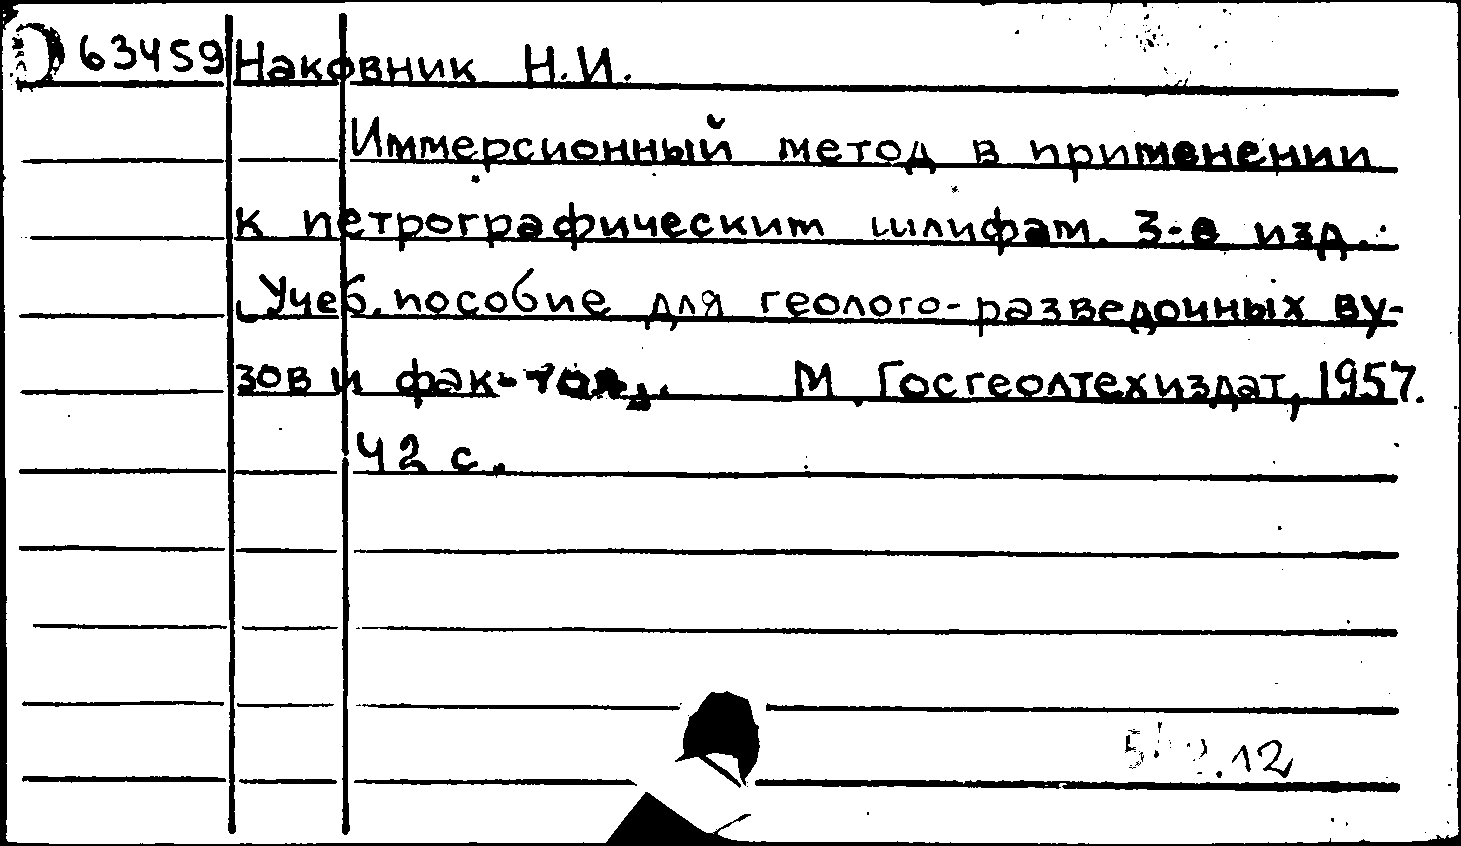 63459 Наковник Н.И.
Иммерсионный метод в применении
к петрографическим шлифам. 3-е изд.
Учеб. пособие для геолого-разведочных ву-
зов и фак-тов. М. Госгеолтехиздат, 1957.
42 с.